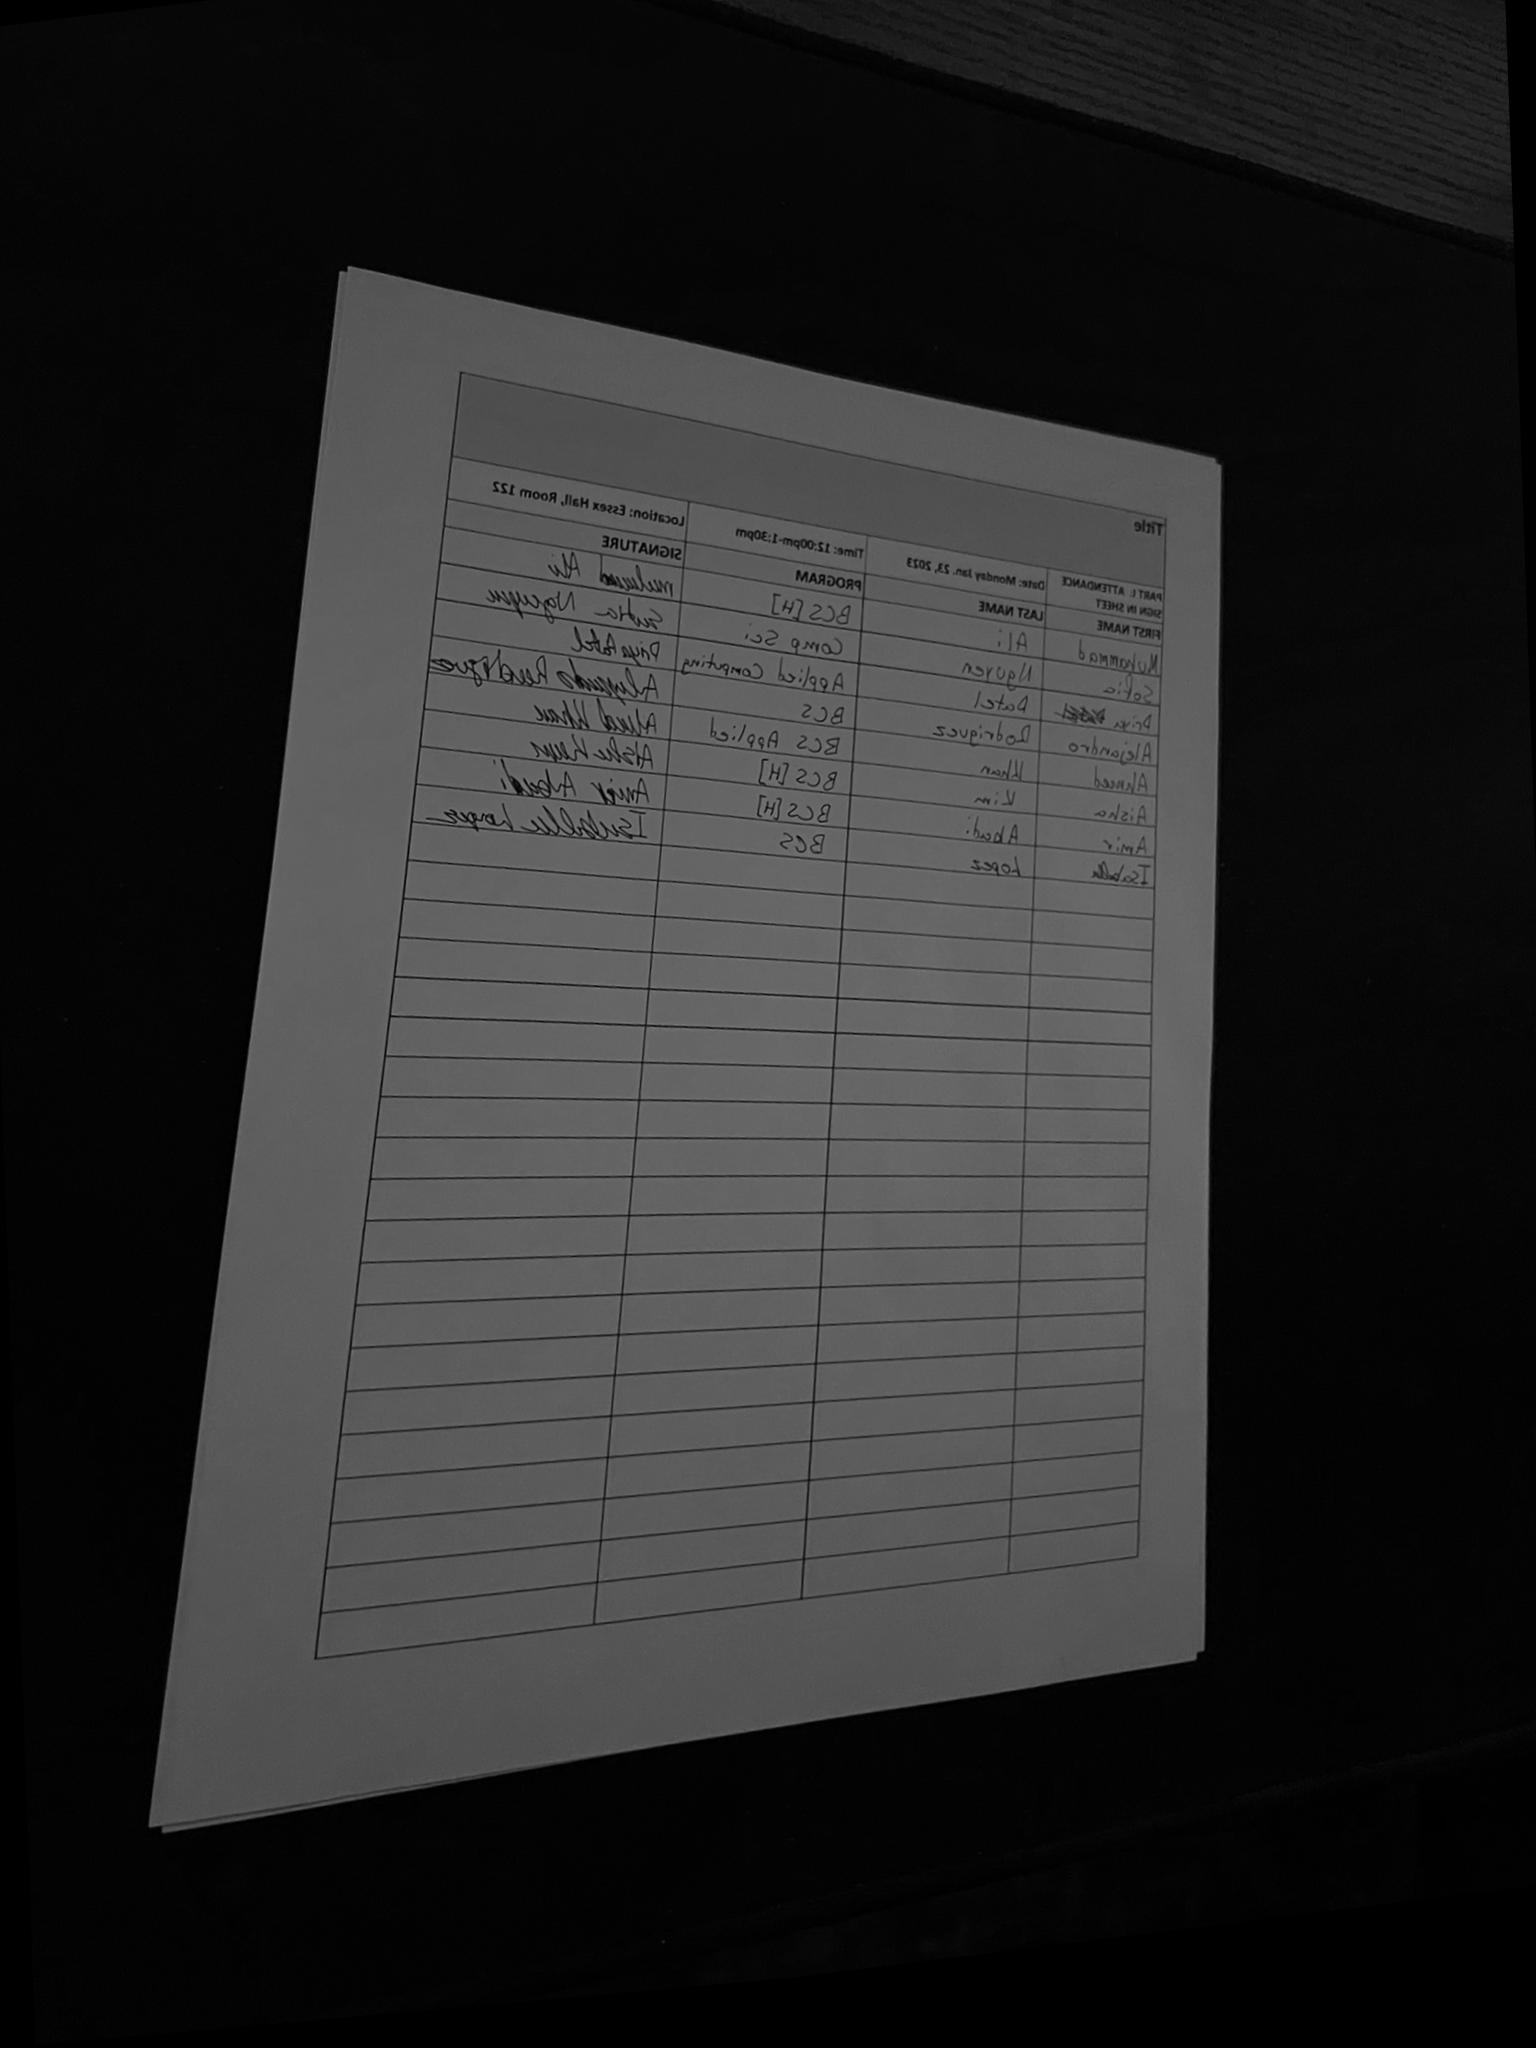 Title
PART I: ATTENDANCE SIGN IN SHEET Date: Monday Jan. 23, 2023 Time: 12:00pm-1:30pm Location: Essex Hall, Room 122
FIRST NAME LAST NAME PROGRAM SIGNATURE
Muhammad Ali BCS [H] Ali
Sofia Nguyen Comp Sci Nguyen
Priya Patel Applied Computing Priya Patel
Alejandro Rodriguez BCS Alejandro Rodriguez
Ahmed Khan BCS Applied Ahmed Khan
Aisha Kim BCS [H] Aisha Kim
Amir Abadi BCS [H] Amir Abadi
Isabella Lopez BCS Isabella Lopez